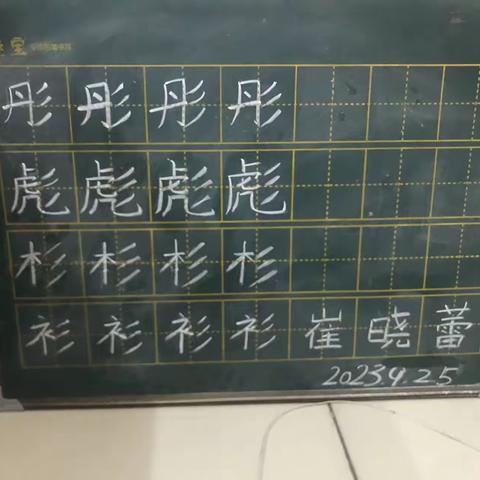 宝
彤彤彤彤
彪彪彪彪
杉杉杉杉
衫衫衫衫崔晓蕾
2023.4.25